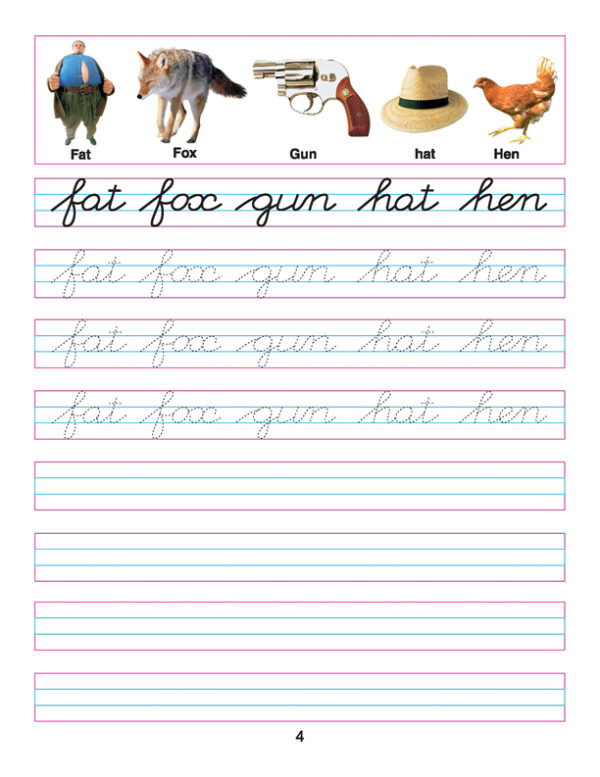 Fat Fox Gun hat Hen
fat fox gun hat hen
fat fox gun hat hen
fat fox gun hat hen
fat fox gun hat hen
4